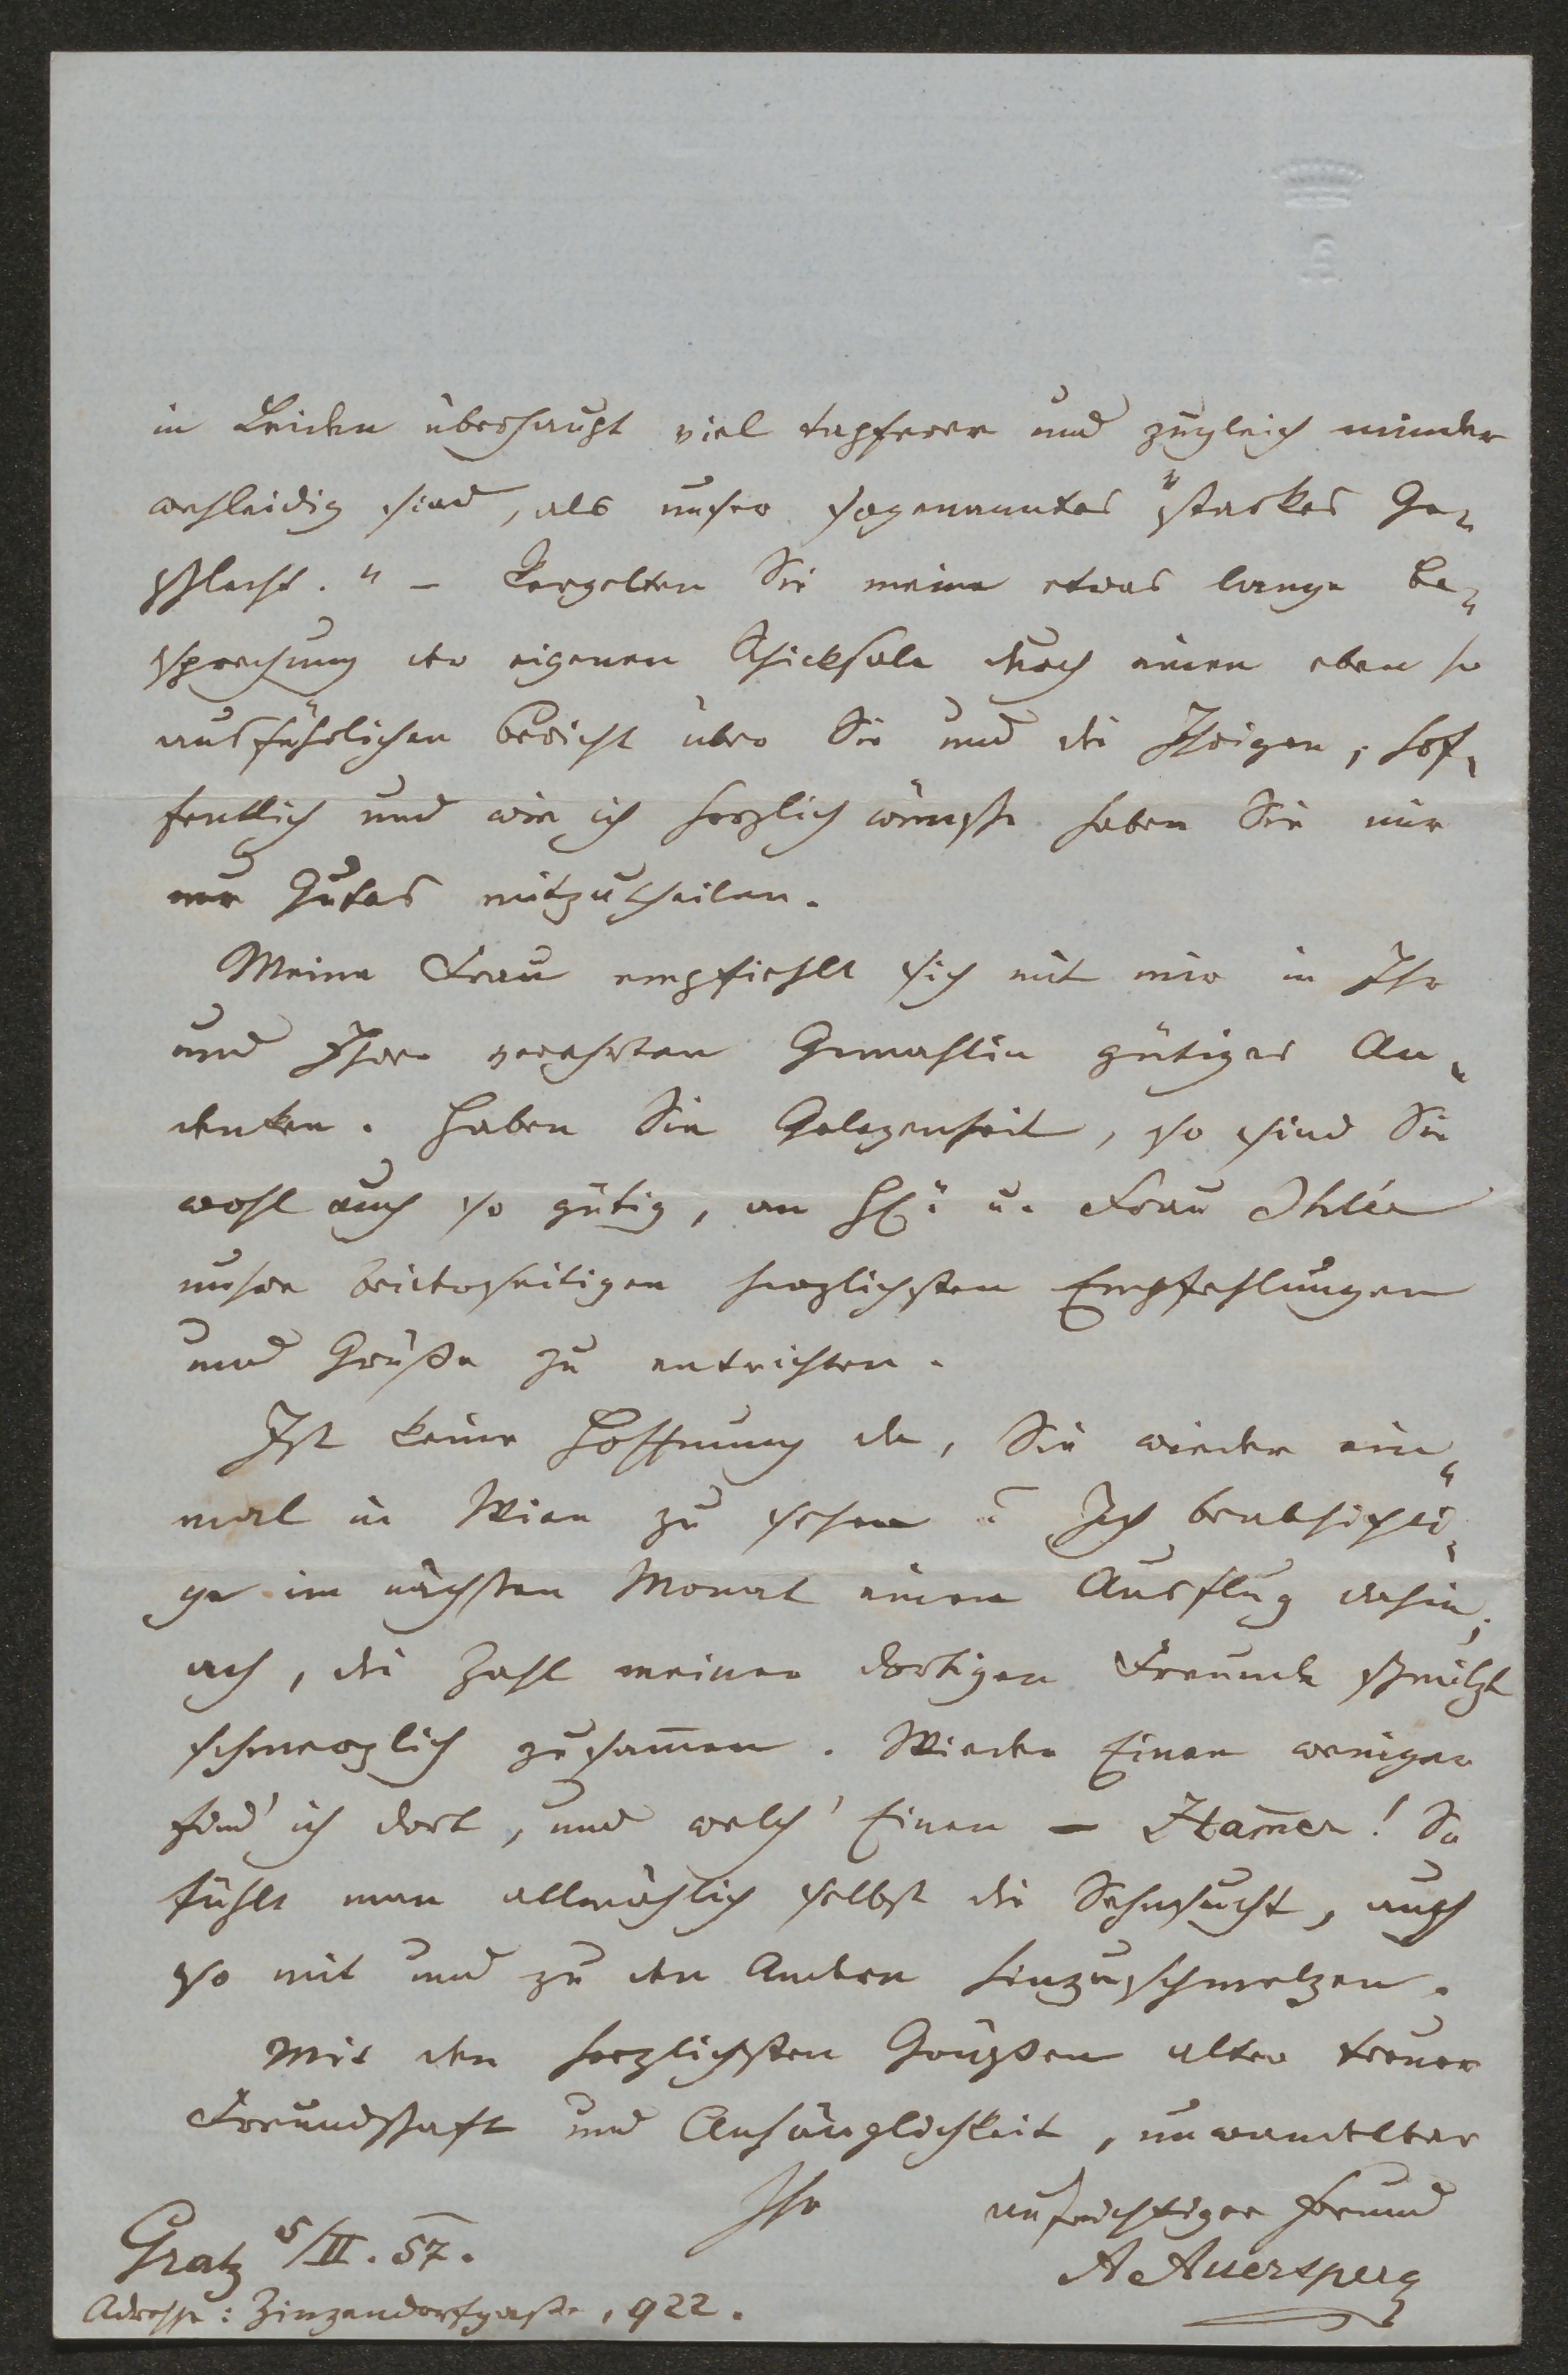 in Leiden überhaupt viel tapferer und zugleich minder
wehleidig sind, als unser sogenanntes "starkes Ge=
schlecht." – Vergelten Sie meine etwas lange Be=
sprechung der eigenen Schicksale durch einen eben so
ausführlichen Bericht über Sie und die Ihrigen, hof=
fentlich und wie ich herzlich wünsche haben Sie mir
nur Gutes mitzutheilen.
Meine Frau empfiehlt sich mit mir in Ihr
und Ihrer verehrten Gemahlin gütiges An=
denken. Haben Sie Gelegenheit, so sind Sie
wohl auch so gütig, an H. u. Frau
unsere beiderseitigen herzlichsten Empfehlungen
und Grüße zu entrichten.
Ist keine Hoffnung da, Sie wieder ein=
mal in Wien zu sehen? Ich beabsichti=
ge im nächsten Monat einen Ausflug dahin;
ach, die Zahl meiner dortigen Freunde schmilzt
schmerzlich zusam̄en. Wieder Einen weniger
find' ich dort, und welch' Einen – Ham̄er! So
fühlt man allmählich selbst die Sehnsucht, auch
so mit und zu den Andern hinzuschmelzen.
Mit den herzlichsten Grüßen alter treuer
Freundschaft und Anhänglichkeit, unwandelbar
Ihr aufrichtiger Freund
Gratz 5/II. 57.
A Auersperg
Adresse: Zinzendorfgasse, 922.